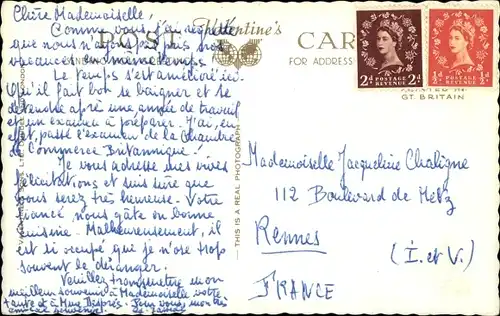 Chère Mademoiselle,
Comme vous j'ai regretté
que nous n'ayons pas pris nos
vacances en même temps.
Le temps s'est amélioré ici.
Qu'il fait bon se baigner et se
détendre après une année de travail
et un examen à préparer. J'ai, en
effet, passé l'examen de la Chambre
de Commerce Britannique.
Je vous adresse mes vives
félicitations et suis sûre que
vous serez très heureuse. Votre
fiancé nous gâte en bonne
cuisine. Malheureusement, il
est si occupé que je n'ose trop
souvent le déranger.
Veuillez transmettre mon
meilleur souvenir à Mademoiselle votre
tante et à Mme
amical souvenir.
POST CARD
Valentine's
FOR ADDRESS
THIS IS A REAL PHOTOGRAPH
2d POSTAGE REVENUE 2d
½d POSTAGE REVENUE ½d
GT. BRITAIN
Mademoiselle Jacqueline Chaligne
112 Boulevard de Metz
Rennes
(I. et V.)
FRANCE